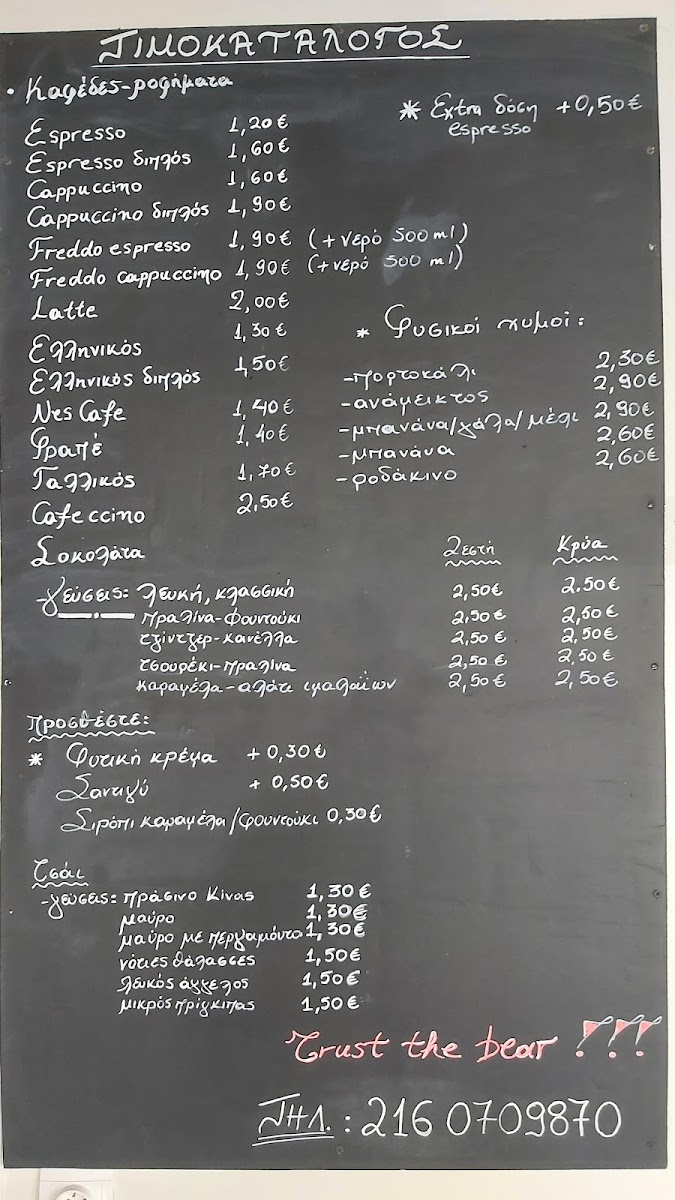 ΤΙΜΟΚΑΤΑΛΟΓΟΣ
• Καφέδες-ροφήματα
* Extra δόση +0,50€
espresso
Espresso 1,20€
Espresso διπλός 1,60€
Cappuccino 1,60€
Cappuccino διπλός 1,90€
Freddo espresso 1,90€ (+νερό 500 ml)
Freddo cappuccino 1,90€ (+νερό 500 ml)
Latte 2,00€
Ελληνικός 1,30€
Ελληνικός διπλός 1,50€
Nes Cafe 1,40€
Φραπέ 1,40€
Γαλλικός 1,70€
Cafeccino 2,50€
* Φυσικοί χυμοί:
-πορτοκάλι 2,30€
-ανάμεικτος 2,90€
-μπανάνα/γάλα/μέλι 2,90€
-μπανάνα 2,60€
-ροδάκινο 2,60€
Σοκολάτα Ζεστή Κρύα
-γεύσεις: λευκή, κλασσική 2,50€ 2.50€
πραλίνα-φουντούκι 2,50€ 2,50€
τζίντζερ-κανέλλα 2,50€ 2,50€
τσουρέκι-πραλίνα 2,50€ 2,50€
καραμέλα-αλάτι ιμαλαΐων 2,50€ 2,50€
Προσθέστε:
* Φυτική κρέμα +0,30€
Σαντιγύ + 0,50€
Σιρόπι καραμέλα/φουντούκι 0,30€
Τσάι
-γεύσεις: πράσινο Κίνας 1,30€
μαύρο 1,30€
μαύρο με περγαμόντο 1,30€
νότιες θάλασσες 1,50€
λευκός άγγελος 1,50€
μικρός πρίγκιπας 1,50€
Trust the bear !!!
ΤΗΛ.: 216 0709870